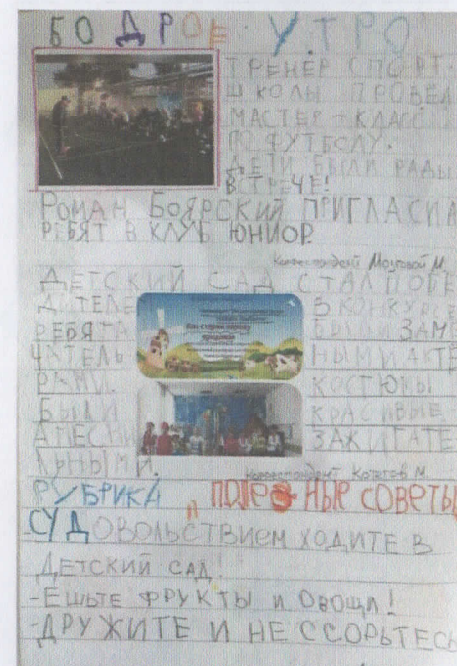 БОДРОЕ УТРО
ТРЕНЕР СПОРТ.
ШКОЛЫ ПРОВЕЛ
МАСТЕР-КЛАСС
ПО ФУТБОЛУ.
ДЕТИ БЫЛИ РАДЫ
ВСТРЕЧЕ!
РОМАН БОЯРСКИЙ ПРИГЛАСИЛ
РЕБЯТ В КЛУБ ЮНИОР.
Мозговой М.
ДЕТСКИЙ САД СТАЛ ПОБЕ
ДИТЕЛЕ В КОНКУРСЕ
РЕБЯТА БЫЛИ ЗАМЕ
ЧАТЕЛЬ НЫМИ АКТЁ
РАМИ. КОСТЮМЫ
БЫЛИ КРАСИВЫЕ
А ПЕСНИ ЗАЖИГАТЕ
ЛЬНЫМИ.
Корреспондент М.
РУБРИКА "ПОЛЕЗНЫЕ СОВЕТЫ
С УДОВОЛЬСТВИЕМ ХОДИТЕ В
ДЕТСКИЙ САД!
-ЕШЬТЕ ФРУКТЫ И ОВОЩИ!
-ДРУЖИТЕ И НЕ ССОРЬТЕСЬ